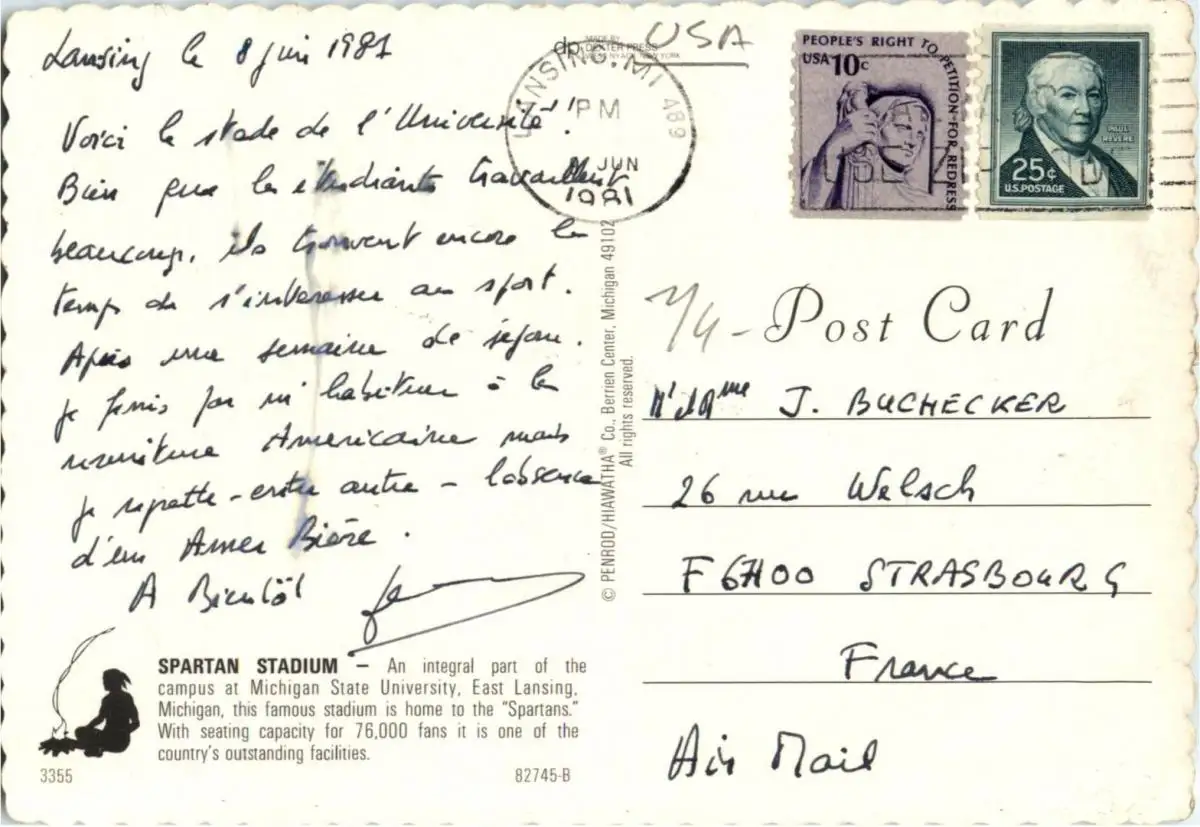 Lansing le 8 juin 1981
Voici le stade de l'Université!
Bien que les étudiants travaillent
beaucoup, ils trouvent encore le
temps de s'intéresser au sport.
Après une semaine de séjour.
Je suis habituer à la
nourriture Américaine mais
je regrette - entre autre - l'absence
d'un Amer Bière.
A Bientôt
SPARTAN STADIUM — An integral part of the
campus at Michigan State University, East Lansing,
Michigan, this famous stadium is home to the "Spartans."
With seating capacity for 76,000 fans it is one of the
country's outstanding facilities.
3355
82745-B
© PENROD/HIAWATHA® Co., Berrien Center, Michigan 49102
All rights reserved.
dp
MADE BY
DEXTER PRESS
NEW YORK
USA
LANSING, MI 489
PM
JUN
1981
PEOPLE'S RIGHT TO PETITION FOR REDRESS
USA 10c
PAUL
REVERE
25¢
U.S. POSTAGE
Post Card
J. BUCHECKER
26 rue Welsch
F 67400 STRASBOURG
France
Air Mail